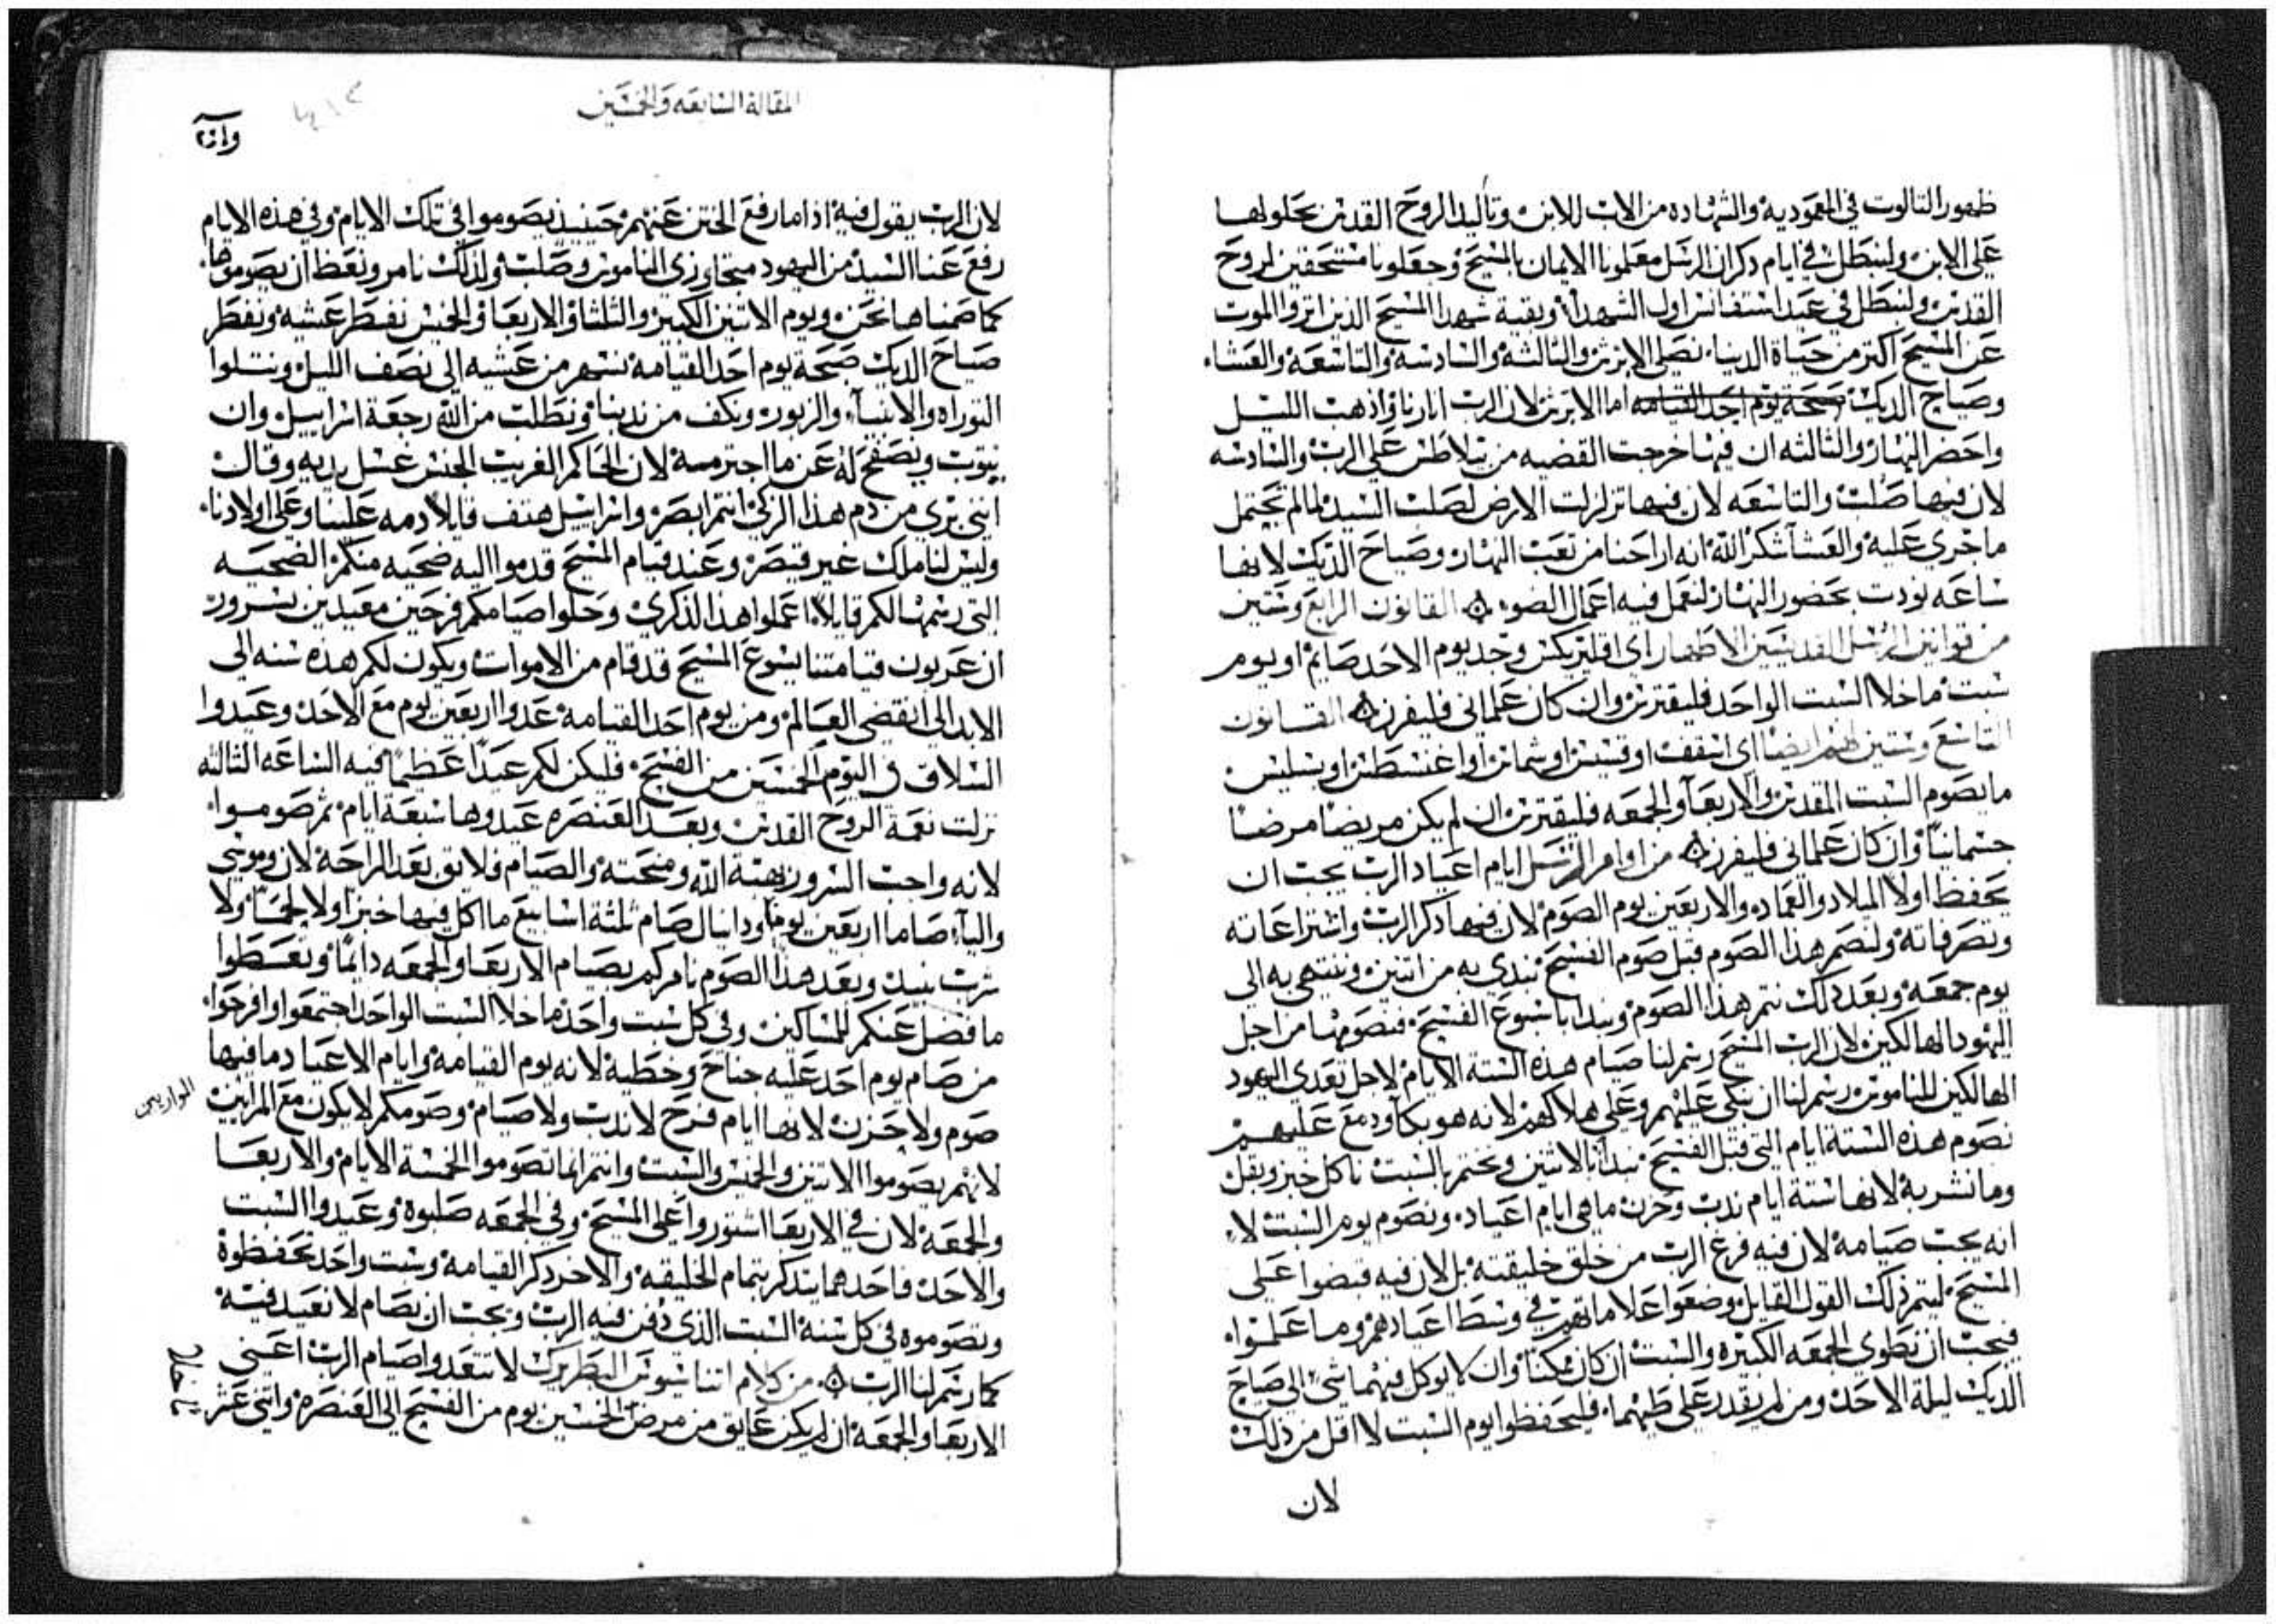 ظهور التالوت في المعمودية والشهاده من الاب للابن وتأليد الروح القدس بحلولها
على الابن ولنبطل في ايام دكران الرسل معلمونا الايمان بالمسيح وجعلونا مستحقين لروح
القدس ولنبطل في عيد استفانس اول الشهدا وبقية شهدا المسيح الدين اتروا الموت
عن المسيح اكتر من حياة الدنيا نصلى الابرتن والثالثة والسادسة والتاسعة والعشاء
وصياح الديك صبحة يوم احد القيامه اما الابرتن لان الرب انارنا واذهب الليل
واحضر النهار والثالثه ان فيها خرجت القضيه من بيلاطس على الرب والسادسه
لان فيها صلب والتاسعه لان فيها تزلزلت الارض لصلب السيد لما لم تحتمل
ما جرى عليه والعشا شكر الله انه اراحنا من تعب النهار وصياح الديك لانها
ساعه نودت بحضور النهار لنعمل فيه اعمال الضوء القانون الرابع وستين
من قوانين الرسل القديسين الاطهار اى اقليريكس وجد يوم الاحد صايم او يوم
سبت ما خلا السبت الواحد فليقترس وان كان علمانى فليفرز القانون
التاسع وستين لهم ايضا اى اسقف او قسيس او شماس او اغنسطس او بسلتس
ما يصوم السبت المقدس والاربعا والجمعه فليقترس ان لم يكن مريضا مرضا
جسمانيا وان كان علمانى فليفرز من اوامر الرسل ايام اعياد الرب يجب ان
يحفظ اولا الميلاد والعماد والاربعين يوم الصوم لان فيها دكر الرب واشتراعاته
وتصرفاته ولنصم هذا الصوم قبل صوم الفسح نبدى به من اتنين وينتهى به الى
يوم جمعه وبعد دلك نتم هذا الصوم ونبدا باسبوع الفسح فنصومها من اجل
اليهود الهالكين لان الرب المسيح رسم لنا صيام هذه الستة الايام لاجل تعدى اليهود
الهالكين للناموس رسم لنا ان نبكى عليهم وعلى هلاكهم لانه هو بكا ودمع عليهم
نصوم هذه الستة ايام التى قبل الفسح نبدا بالاتنين ونختم بالسبت ناكل خبز وبقل
وما نشربه لانها ستة ايام ندب وحزن ما هى ايام اعياد ونصوم يوم السبت لا
انه يجب صيامه لان فيه فرغ الرب من خلق خليقته بل لان فيه قبضوا على
المسيح ليتم ذلك القول القايل وضعوا علاماتهم في وسط اعيادهم وما علموا
فيجب ان نطوى الجمعه الكبيره والسبت ان كان ممكنا وان لا يوكل فيهما شى الى صياح
الديك ليلة الاحد ومن لم يقدر على طيهما فليحفظوا يوم السبت لا اقل من ذلك
لان
المقالة السابعه والخمسين
لان الرب يقول فيه اذا ما رفع الختن عنهم حينيذ يصوموا في تلك الايام وفي هذه الايام
رفع عنا السيد من اليهود متجاوزى الناموس وصلب ولذلك نامر ونعظ ان يصوموها
كما صمناها نحن ويوم الاتنين الكبير والثلثا والاربعا والخميس نفطر عشيه ونفطر
صياح الديك صبحة يوم احد القيامه نسهر من عشيه الى نصف الليل ونتلوا
التوراه والانبيآء والزبور ونكف من ندبنا ونطلب من الله رجعة اسراييل وان
يتوب ويصفح له عن ما اجترمه لان الحاكم الغريب الجنس غسل يديه وقال
اننى برى من دم هذا الزكى انتم ابصر واسراييل هتف قايلا دمه علينا وعلى اولادنا
وليس لنا ملك غير قيصر وعند قيام المسيح قدموا اليه ضحيه منكم الضحيه
التى رسمها لكم قايلا اعملوا هذا الذكرى وحلوا صيامكم فرحين معيدين بسرور
ان عربون قيامتنا يسوع المسيح قد قام من الاموات ويكون لكم هذه سنه الى
الابد الى انقضى العالم ومن يوم احد القيامه عدوا اربعين يوم مع الاحد وعيدوا
السلاق في اليوم الخمسين من الفسح فليكن لكم عيدا عظيما فيه الساعه الثالثه
نزلت نعمة الروح القدس وبعد العنصره عيدوها سبعة ايام ثم صوموا
لانه واجب السرور بهبة الله ومنحته والصيام فلايق بعد الراحة لان موسى
والياء صاما اربعين يوما ودانيال صام ثلثة اسابيع ما اكل فيها خبزا ولا لحما ولا
شرب نبيد وبعد هذا الصوم نامركم بصيام الاربعا والجمعه دايما وتعطوا
ما فضل عنكم للمساكين وفي كل سبت واحد ما خلا السبت الواحد اجتمعوا وافرحوا
من صام يوم احد عليه جناح وخطية لانه يوم القيامه وايام الاعياد ما فيها
صوم ولا حزن لانها ايام فرح لا ندب ولا صيام وصومكم لا يكون مع المرايين
لانهم يصوموا الاتنين والخميس والسبت وانتم انما تصوموا الخمسة الايام والاربعا
والجمعه لان في الاربعا اشتوروا على المسيح وفي الجمعه صلبوه وعيدوا السبت
والاحد فاحدهما يتدكر بتمام الخليقه والاخر دكر القيامه وسبت واحد تحفظوة
وتصوموه في كل سنة السبت الذى دفن فيه الرب ويجب ان يصام لا نعيد فيه
كما رسم لنا الرب من كلام اتناسيوس البطريرك لا تتعدوا صيام الرب اعنى
الاربعا والجمعه ان لم يكن عايق من مرض الخمسين يوم من الفسح الى العنصره واتنى عشر